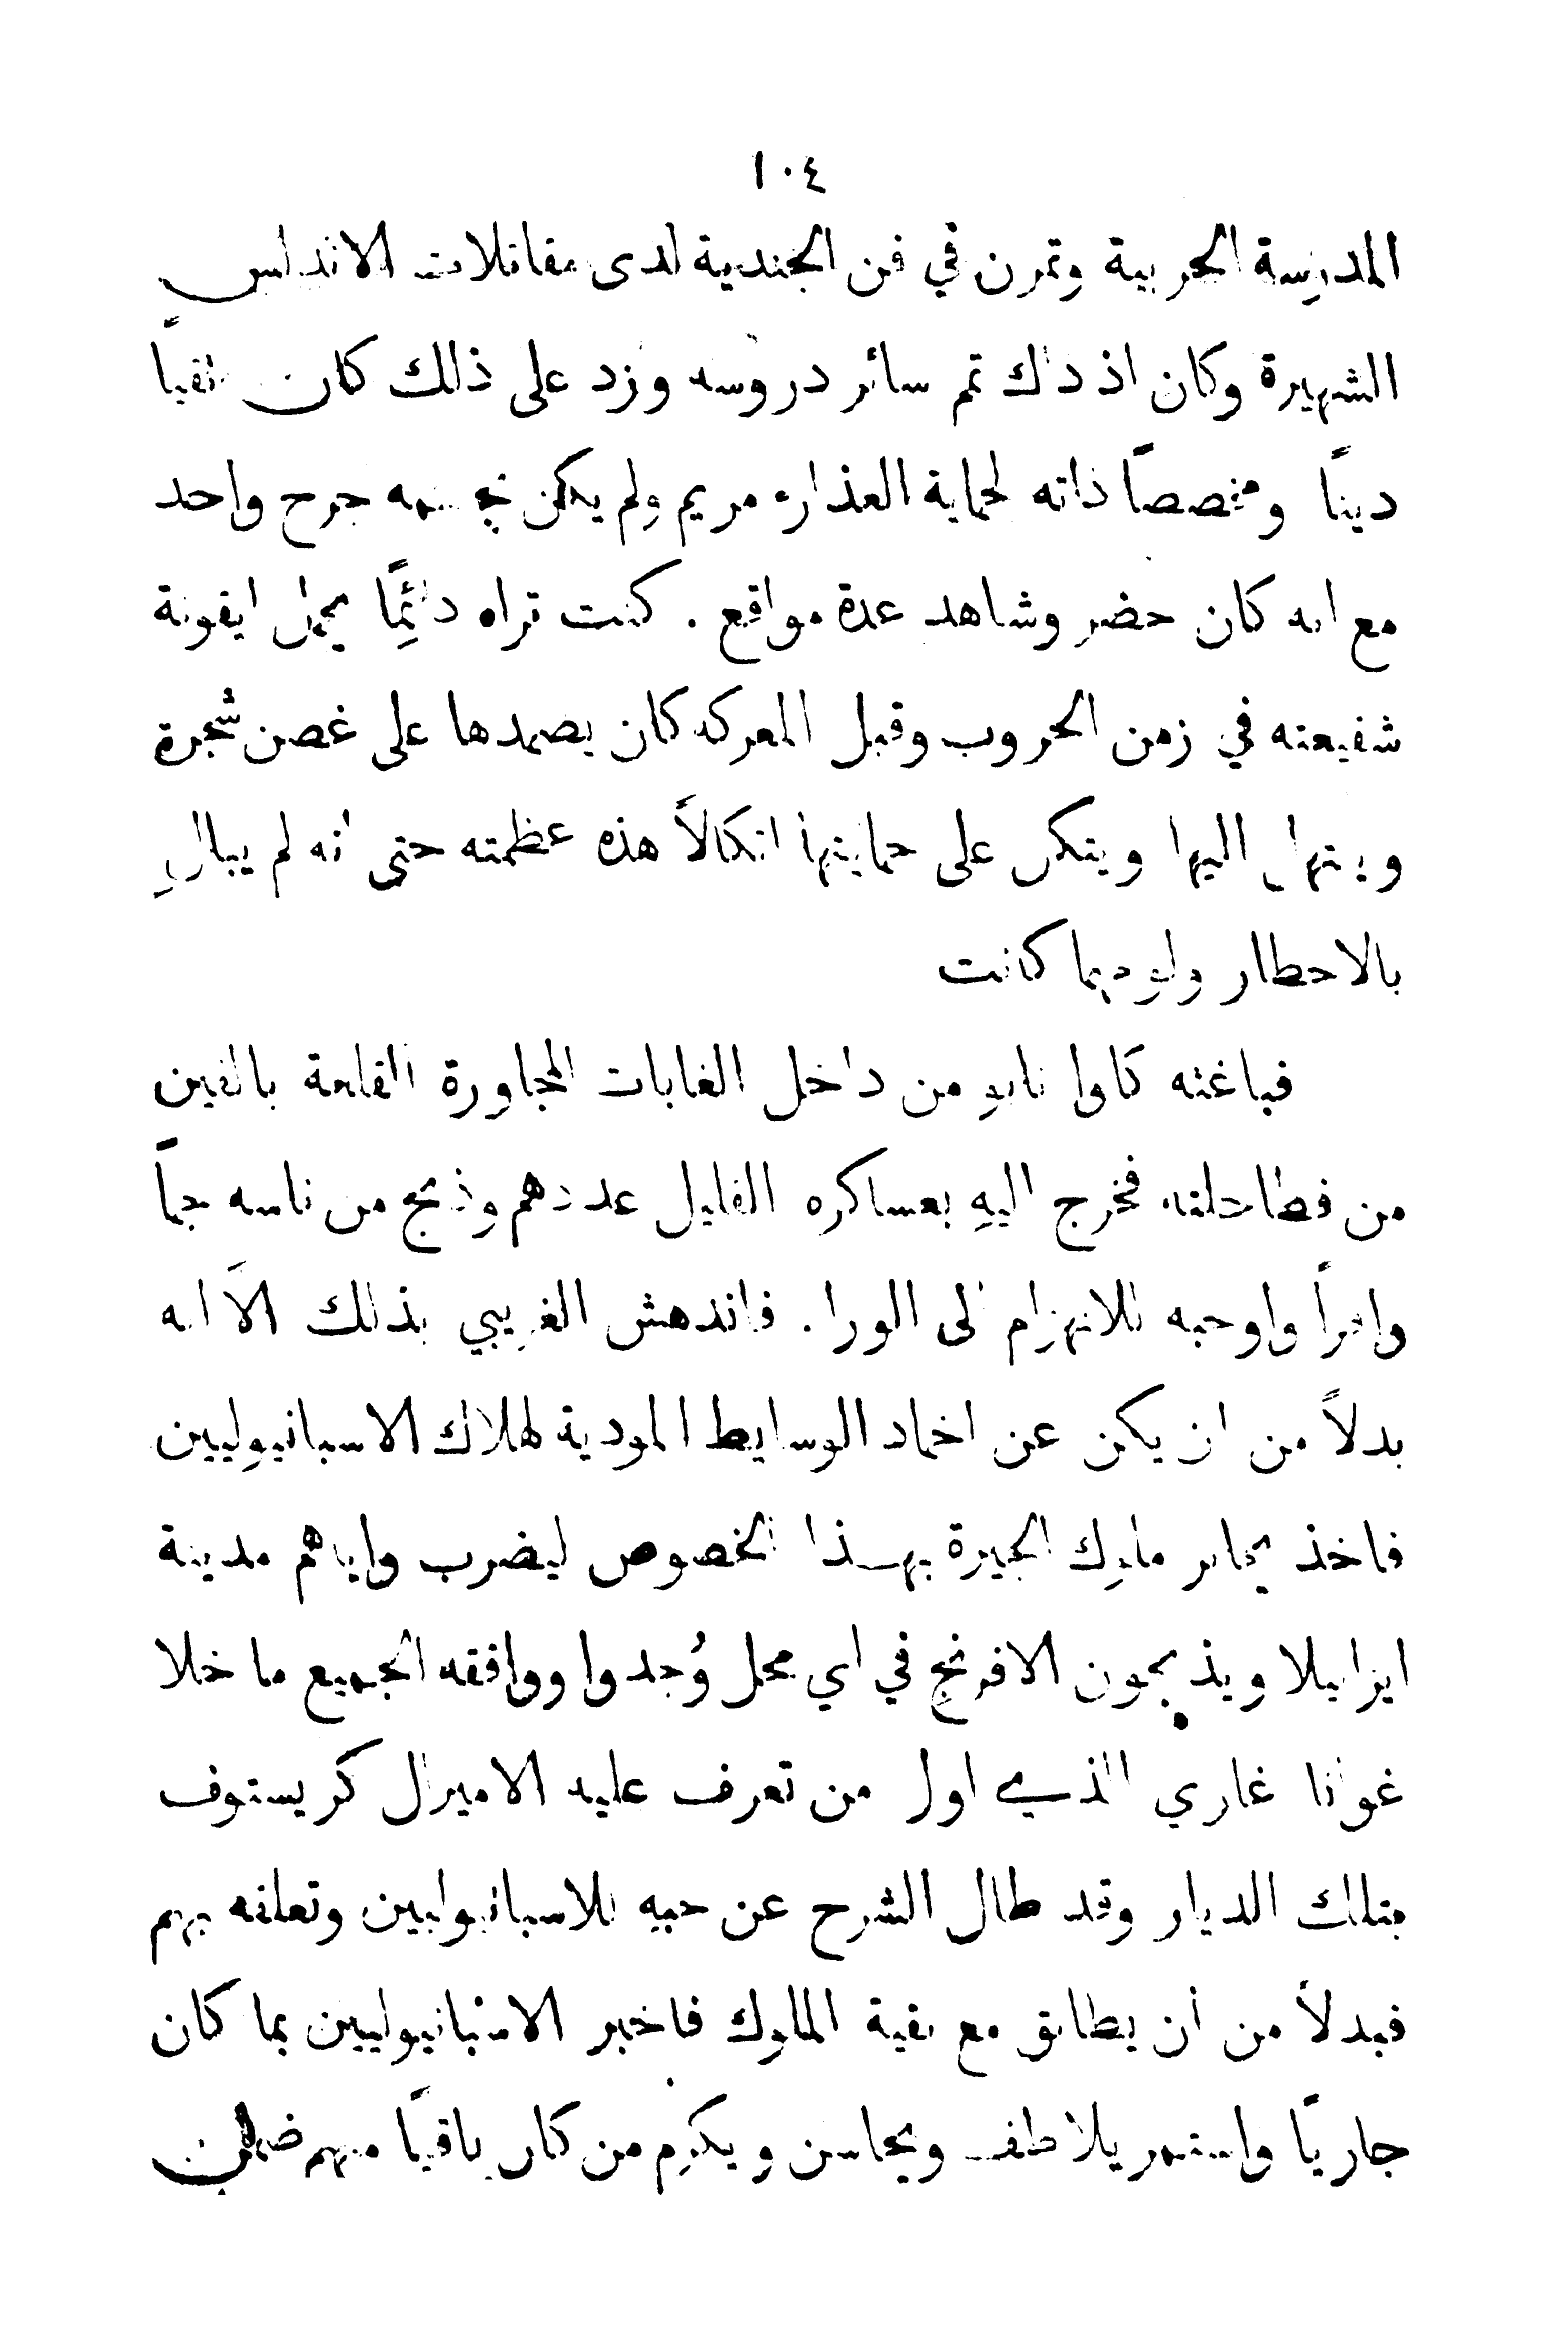 ١٠٤
المدرسة الحربية وتمرن في فن الجندية لدى مقاتلات الاندلس
الشهيرة وكان اذ ذاك تمم سائر دروسه وزد على ذلك كان تقياً
ديناً ومخصصاً ذاته لحماية العذراء مريم ولم يكن بجسمه جرح واحد
مع انه كان حضر وشاهد عدة مواقع . كنت تراه دائِمًا يحمل ايقونة
شفيعته في زمن الحروب وقبل المعركه كان يصمدها على غصن شجرة
ويبتهل اليها ويتكل على حمايتها اتكالاً هذه عظمته حتى انه لم يبالِ
بالاخطار ولو مهما كانت
فباغته كاوا نابو من داخل الغابات المجاورة القلعة بالفين
من فطاحلته فخرج اليهِ بعساكره القليل عددهم وذبح من ناسه جماً
وافراً واوجبه للانهزام الى الورا . فاندهش الغريبي بذلك الاَّ انه
بدلاً من ان يكن عن اخماد الوسايط المودية لهلاك الاسبانيوليين
فاخذ يخابر ملوك الجيرة بهذا الخصوص ليضرب واياهم مدينة
ايزابيلا ويذبحون الافرنج في اي محل وُجدوا ووافقه الجميع ما خلا
غوانا غاري الذي اول من تعرف عليه الاميرال كريستوف
بتلك الديار وقد طال الشرح عن حبهِ للاسبانيوليين وتعلقه بهم
فبدلاً من أن يطابق مع بقية الملوك فاخبر الاسبانيوليين بما كان
جاريًا واستمر يلاطف ويحاسن ويكرم من كان باقيًا منهم ضمن